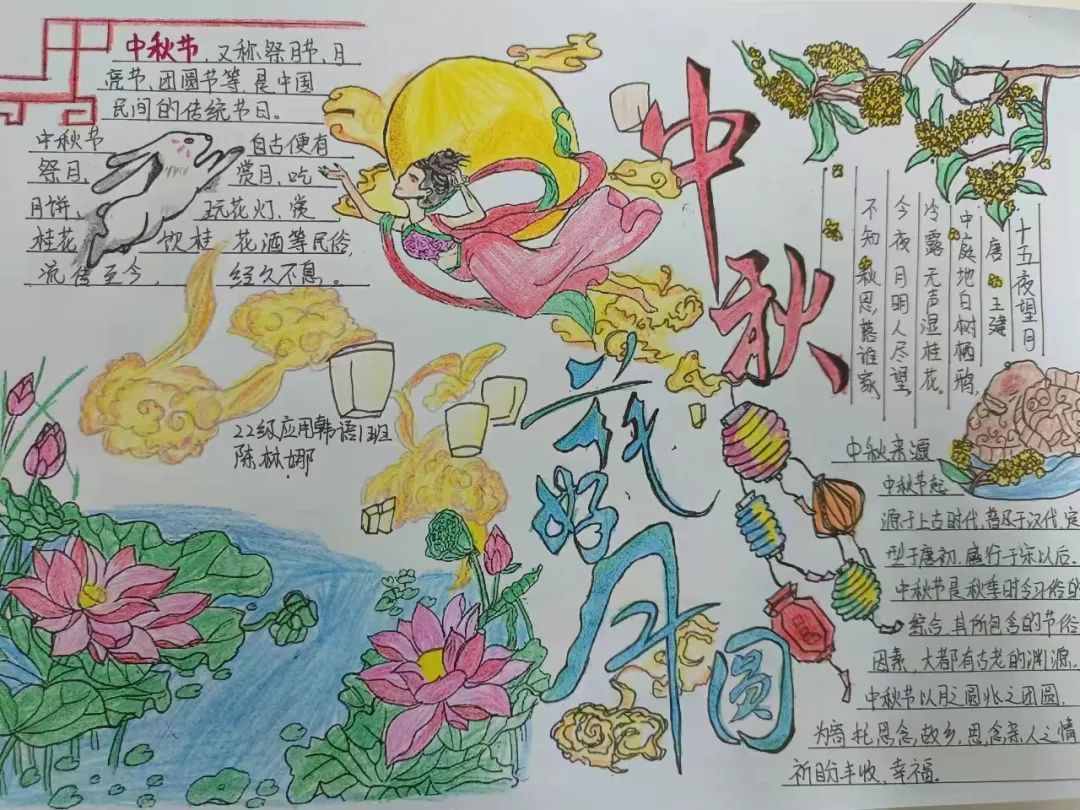 中秋节,又称祭月节、月
亮节、团圆节等,是中国
民间的传统节日。
中秋节 自古便有
祭月、 赏月、吃
月饼、 玩花灯、赏
桂花、 饮桂 花酒等民俗,
流传至今, 经久不息。
22级应用韩语1班
陈林娜
中秋
花好月圆
十五夜望月
唐 王建
中庭地白树栖鸦,
冷露无声湿桂花。
今夜月明人尽望,
不知秋思落谁家。
中秋来源
中秋节起
源于上古时代,普及于汉代,定
型于唐初,盛行于宋以后。
中秋节是秋季时令习俗的
综合,其所包含的节俗
因素,大都有古老的渊源。
中秋节以月之圆兆之团圆,
为寄托思念故乡,思念亲人之情,
祈盼丰收、幸福。